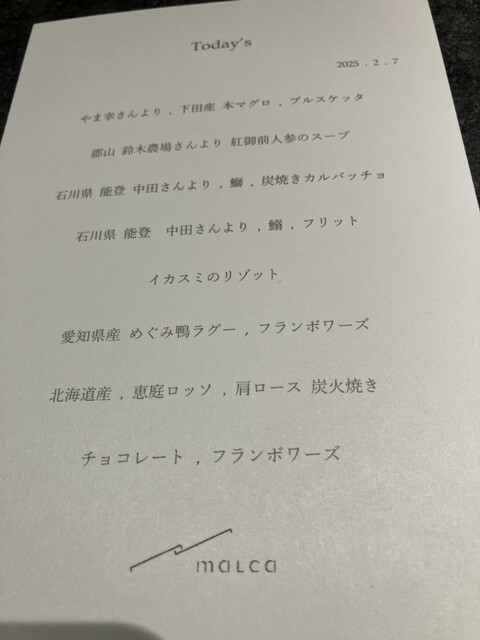 Today's
2025 . 2 . 7
やま幸さんより , 下田産 本マグロ , ブルスケッタ
郡山 鈴木農場さんより 紅御前人参のスープ
石川県 能登 中田さんより , 鰤 , 炭焼きカルパッチョ
石川県 能登 中田さんより , 鰯 , フリット
イカスミのリゾット
愛知県産 めぐみ鴨ラグー , フランボワーズ
北海道産 , 恵庭ロッソ , 肩ロース 炭火焼き
チョコレート , フランボワーズ
malca